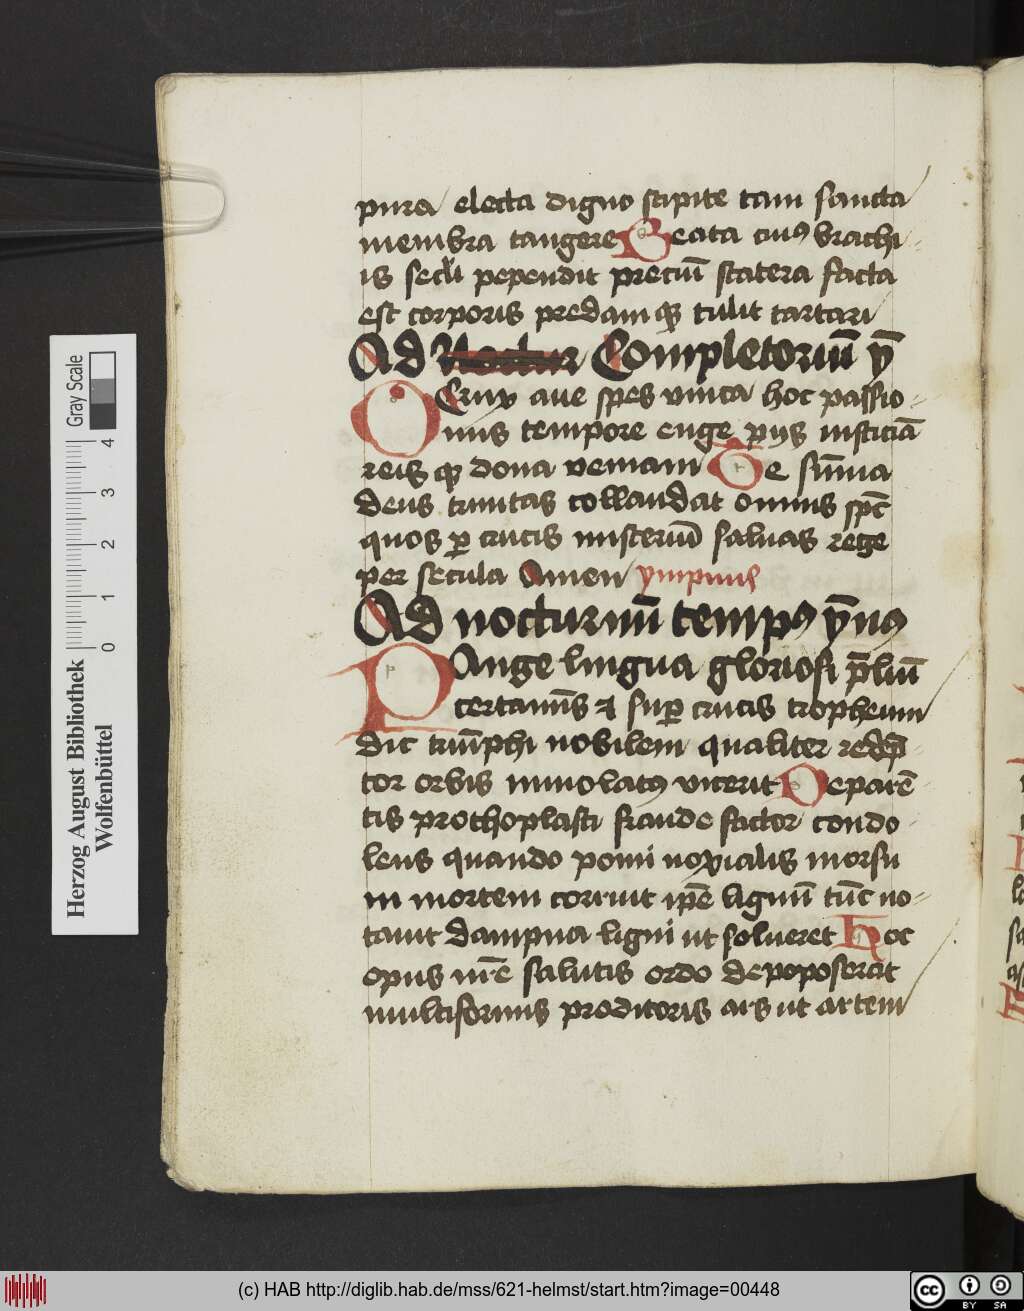 pura electa digno stipite tam sancta
membra tangere Beata cuiꝰ brachi⸗
is secli pependit preciū statera facta
est corporis predam qꝫ tulit tartari
Ad Completoriū ȳ
O Crux aue spes vnica hoc passio⸗
nis tempore auge pijs iusticiā
reis qꝫ dona veniam Te sūma
deus trinitas collaudat omnis spc̄
quos ꝑ crucis misteriū saluas rege
per secula Amen ympnus
Ad nocturnū tempꝰ ȳnꝰ
PAnge lingua gloriosi p̄liū
certamīs et suꝑ crucis tropheum
dic triūphi nobilem qualiter redēp
tor orbis immolatꝰ vicerit De parē
tis prothoplasti fraude factor condo
lens quando pomi noxialis morsu
in mortem corruit ip̄e lignū tūc no⸗
tauit dampna ligni ut solueret Hoc
opus nr̄e salutis ordo depoposcerat
multiformis proditoris ars ut artem
Herzog August Bibliothek
Wolfenbüttel
0 1 2 3 4
Gray Scale
(c) HAB http://diglib.hab.de/mss/621-helmst/start.htm?image=00448
cc BY SA